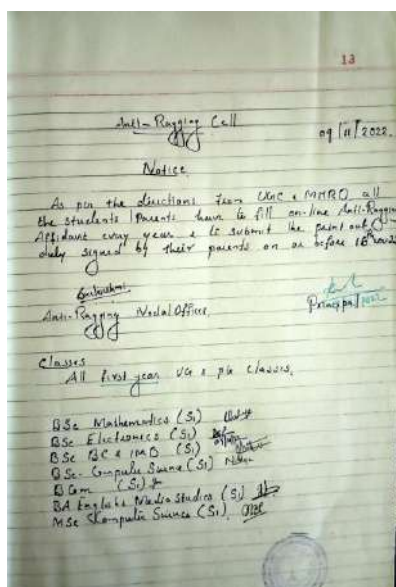 13
Anti-Ragging Cell
09/11/2022.
Notice
As per the directions from UGC & MHRD all
the students/Parents have to fill on-line Anti-Ragging
Affidavit every year & to submit the print out
duly signed by their parents on or before
Anti-Ragging Nodal Officer.
Principal
Classes
All first year UG & PG classes.
BSc Mathematics (S1)
BSc Electronics (S1)
BSc BC & IMB (S1)
BSc. Computer Science (S1)
B Com (S1)
BA English & Media Studies (S1)
MSc Computer Science (S1)